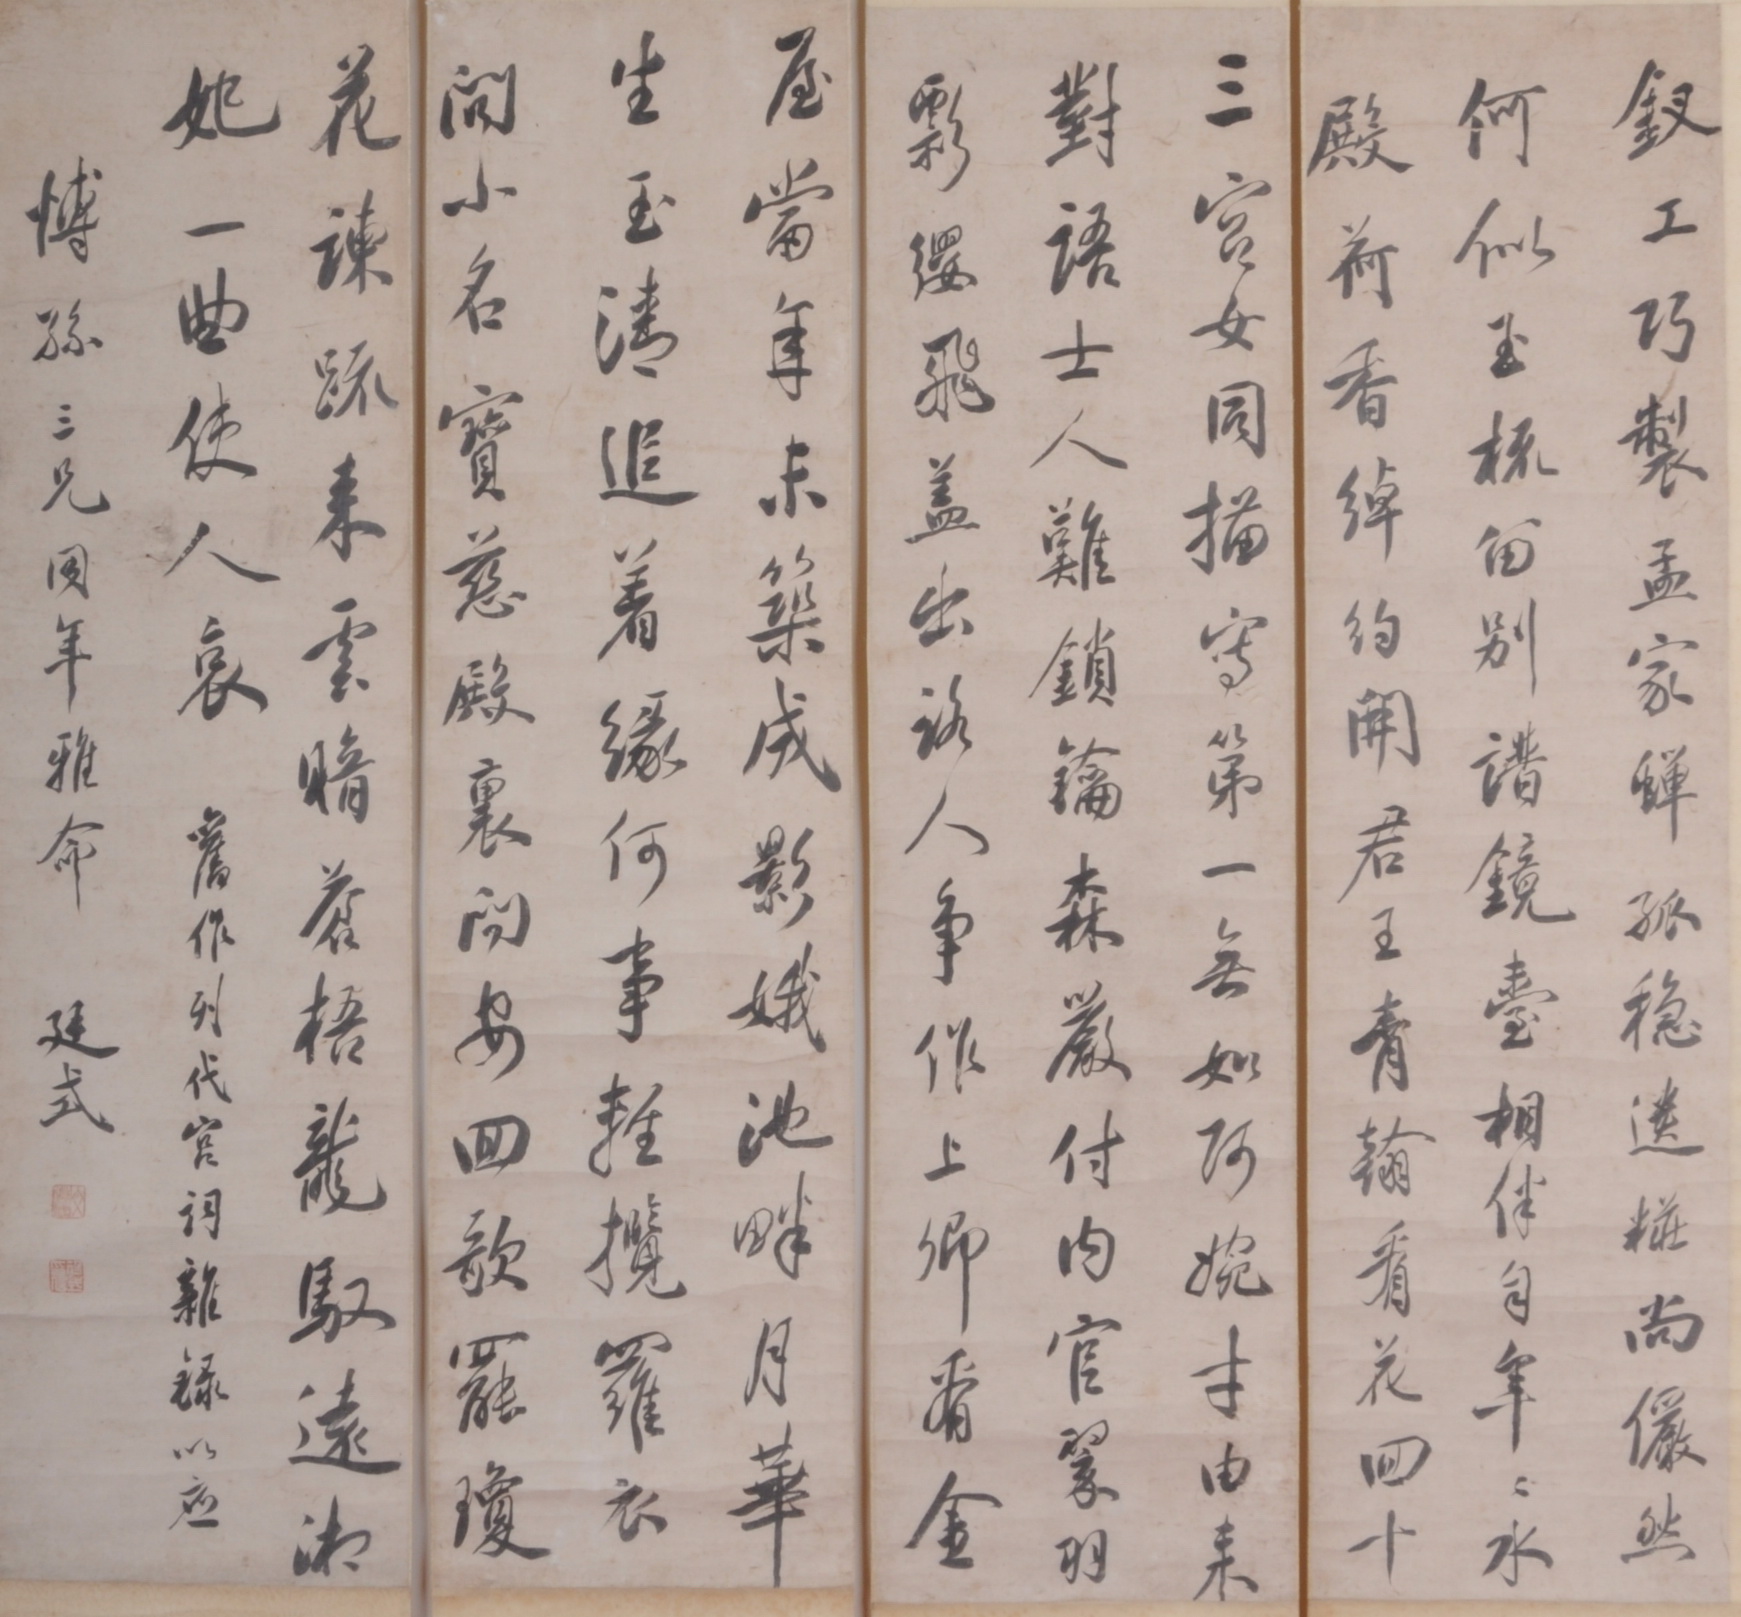 釵工巧製孟家蟬孤穩遺糚尚儼然
何似玉梳留別譜鏡臺相伴自年〻水
殿荷香綽約開君王青翰看花四十
三宮女同描寫第一無如阿婉才由來
對語士人難鎖鑰森嚴付內官翠羽
影纓飛蓋出路人爭作上卿看金
屋當年未築成影娥池畔月華
生玉清追着緣何事難攬羅衣
問小名寶慈殿裏問安回歌罷瓊
花諫疏來雲暗蒼梧龍馭遠湘
妃一曲使人哀 舊作列代宮詞雜錄以應
博孫三兄同年雅命 廷式